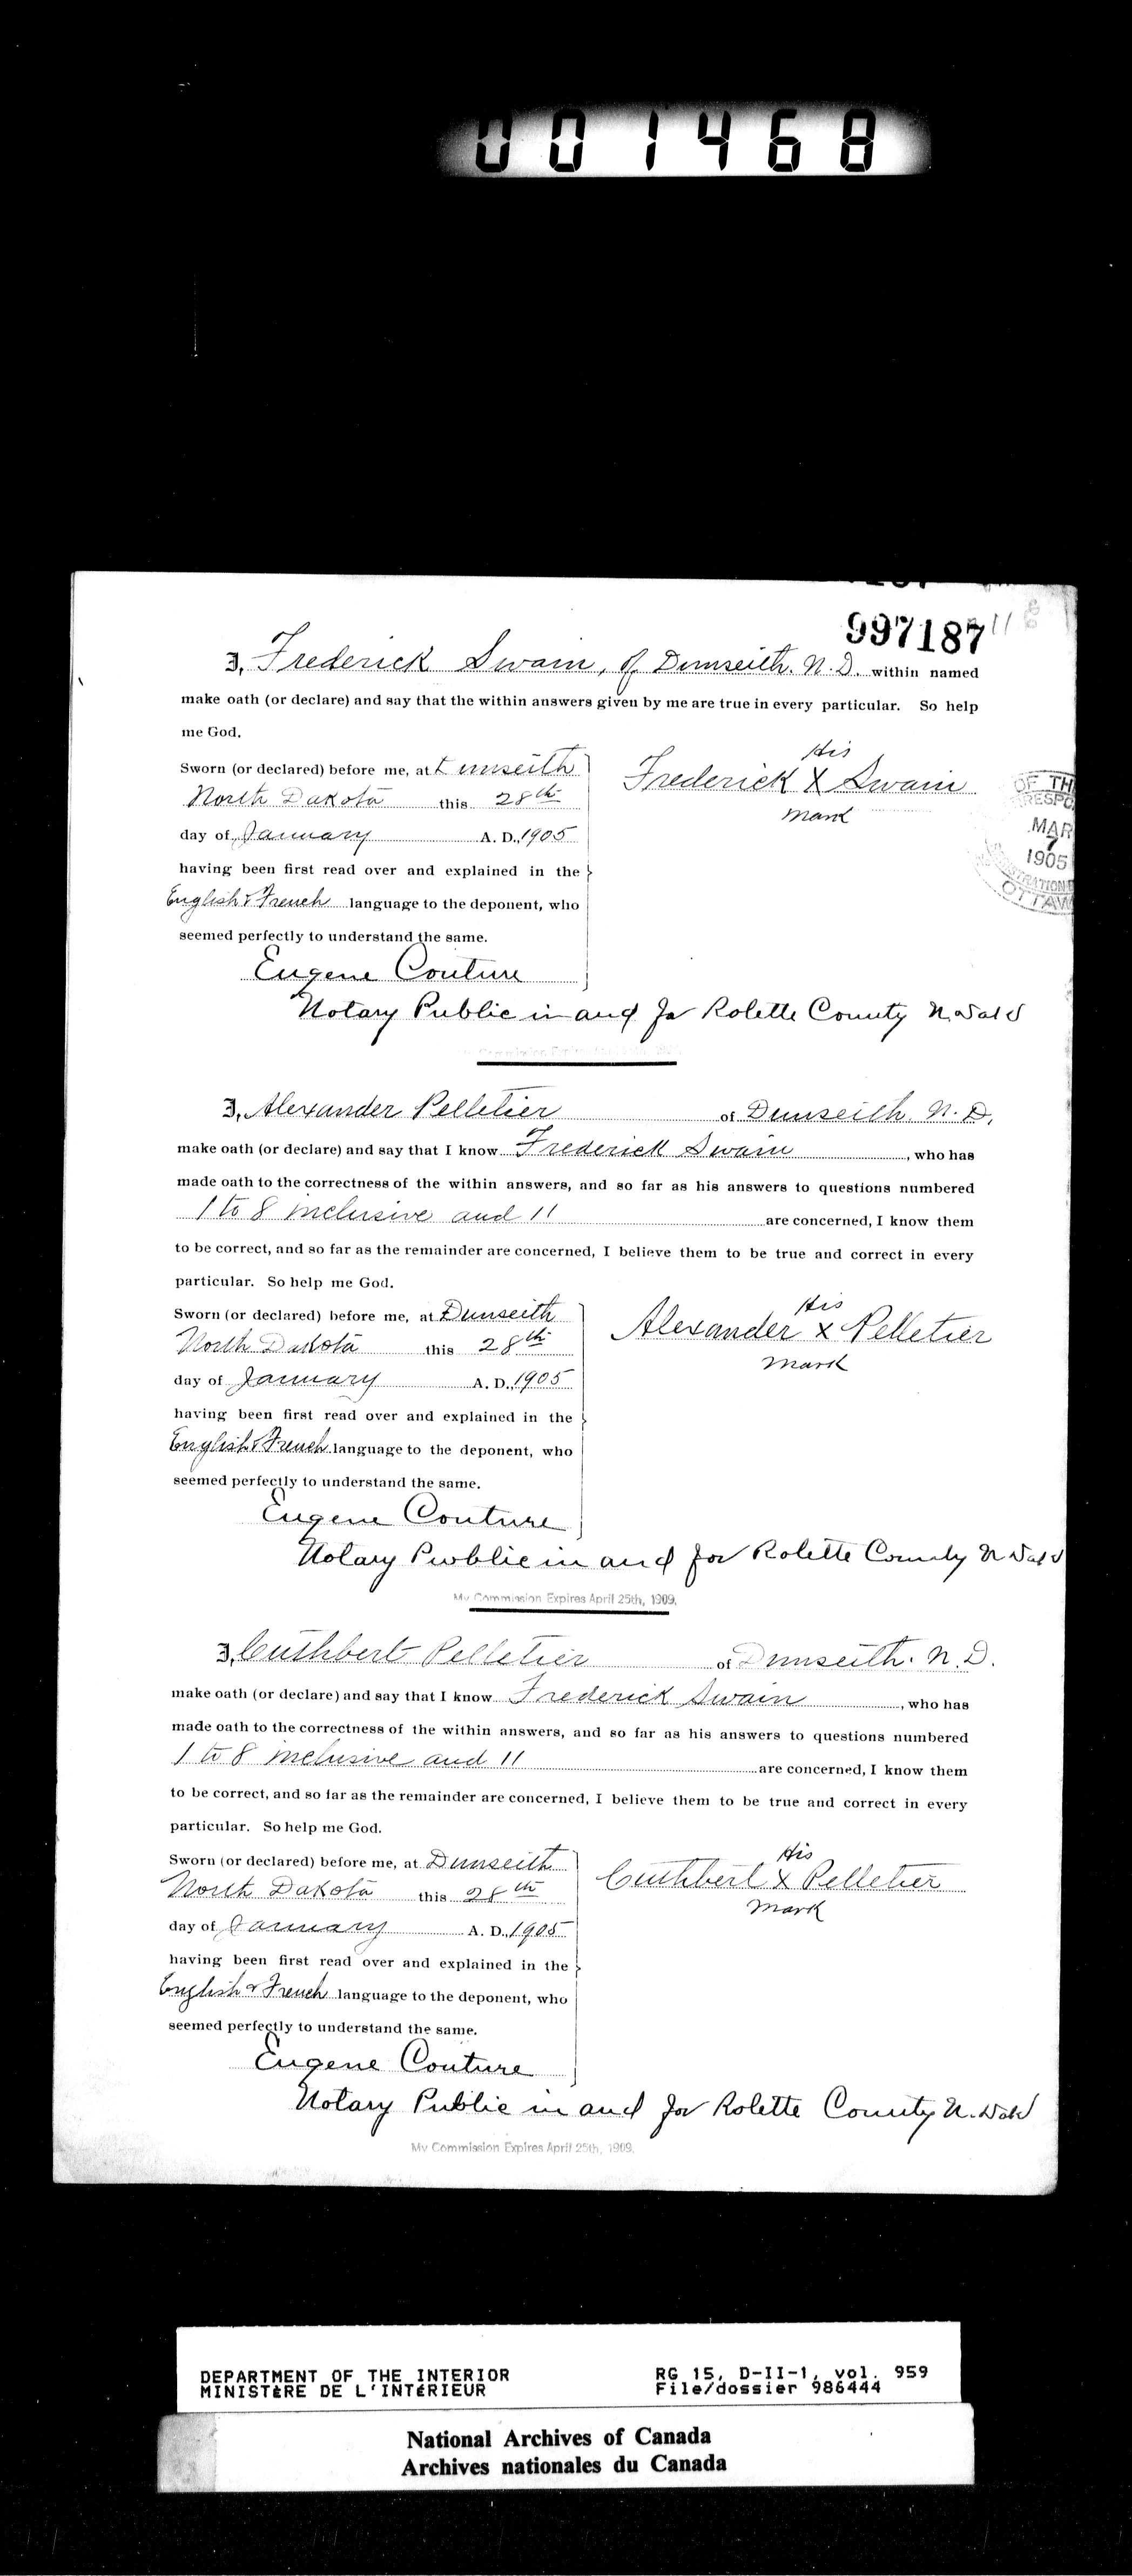 001468
997187
I, Frederick Swain, of Dunseith. N.D. within named
make oath (or declare) and say that the within answers given by me are true in every particular. So help
me God.
Sworn (or declared) before me, at Dunseith
North Dakota this 28th
day of January A. D., 1905
having been first read over and explained in the
English & French language to the deponent, who
seemed perfectly to understand the same.
His
Frederick X Swain
mark
OF TH
RESPO
MAR
7
1905
REGISTRATION
OTTAW
Eugene Couture
Notary Public in and for Rolette County N. Dak
I, Alexander Pelletier of Dunseith, N. D.
make oath (or declare) and say that I know Frederick Swain, who has
made oath to the correctness of the within answers, and so far as his answers to questions numbered
1 to 8 inclusive and 11 are concerned, I know them
to be correct, and so far as the remainder are concerned, I believe them to be true and correct in every
particular. So help me God.
Sworn (or declared) before me, at Dunseith
North Dakota this 28th
day of January A. D., 1905
having been first read over and explained in the
English & French language to the deponent, who
seemed perfectly to understand the same.
His
Alexander x Pelletier
mark
Eugene Couture
Notary Public in and for Rolette County N Dak
My Commission Expires April 25th, 1909.
I, Cuthbert Pelletier of Dunseith. N. D.
make oath (or declare) and say that I know Frederick Swain, who has
made oath to the correctness of the within answers, and so far as his answers to questions numbered
1 to 8 inclusive and 11 are concerned, I know them
to be correct, and so far as the remainder are concerned, I believe them to be true and correct in every
particular. So help me God.
Sworn (or declared) before me, at Dunseith
North Dakota this 28th
day of January A. D., 1905
having been first read over and explained in the
English & French language to the deponent, who
seemed perfectly to understand the same.
His
Cuthbert X Pelletier
mark
Eugene Couture
Notary Public in and for Rolette County N. Dak
My Commission Expires April 25th, 1909.
DEPARTMENT OF THE INTERIOR RG 15, D-II-1, vol. 959
MINISTÈRE DE L'INTÉRIEUR File/dossier 986444
National Archives of Canada
Archives nationales du Canada